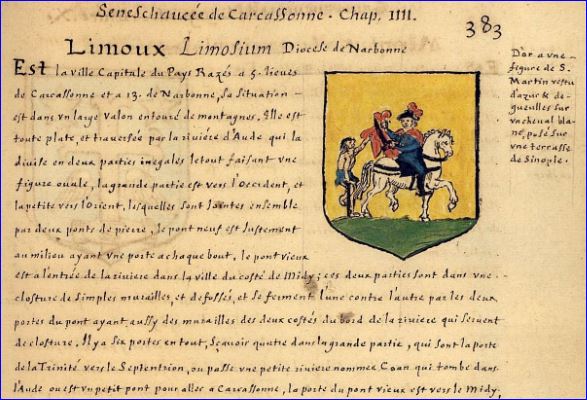 Seneschaucée de Carcassonne. Chap. IIII.
383
Limoux Limosium Diocese de Narbonne
Est la ville Capitale du Pays Razés a 5. lieues
de Carcassonne et a 13. de Narbonne, sa situation
est dans vn large valon entouré de montagnes. Elle est
toute plate, et trauersée par la riuiére d'Aude qui la
diuise en deux parties inegales le tout faisant vne
figure ouale, la grande partie est vers l'Occident, et
la petite vers l'Orient, lesquelles sont jointes ensemble
par deux ponts de pierre, le pont neuf est justement
au milieu ayant vne porte a chaque bout, le pont vieux
est a l'entrée de la riuiere dans la ville du costé de Midy; ces deux parties sont dans vne
closture de simples murailles, et de fossés, et se ferment l'une contre l'autre par les deux
portes du pont ayant aussy des murailles des deux costés du bord de la riuiere qui seruent
de closture. Il y a six portes en tout, sçauoir quatre dans la grande partie, qui sont la porte
de la Trinité vers le Septentrion, ou passe vne petite riuiere nommee Coan qui tombe dans
l'Aude ou est vn petit pont pour aller a Carcassonne, la porte du pont vieux est vers le Midy,
D'or a vne
figure de S.
Martin vestu
d'azur & de
gueulles sur
vn cheual bla-
nc, posé sur
vne terrasse
de Sinople.